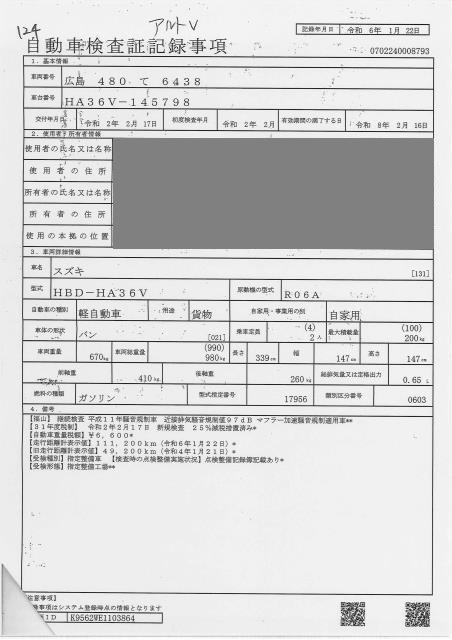 124
アルトV
記録年月日 令和 6年 1月 22日
自動車検査証記録事項
0702240008793
1. 基本情報
車両番号 広島 480 て 6438
車台番号 HA36V-145798
交付年月日 令和 2年 2月 17日 初度検査年月 令和 2年 2月 有効期間の満了する日 令和 8年 2月 16日
2. 使用者・所有者情報
使用者の氏名又は名称
使用者の住所
所有者の氏名又は名称
所有者の住所
使用の本拠の位置
3. 車両詳細情報
車名 スズキ [131]
型式 HBD-HA36V 原動機の型式 R06A
自動車の種別 軽自動車 用途 貨物 自家用・事業用の別 自家用
車体の形状 バン [021] 乗車定員 (4) 2人 最大積載量 (100) 200kg
車両重量 670kg 車両総重量 (990) 980kg 長さ 339cm 幅 147cm 高さ 147cm
前軸重 410kg 後軸重 260kg 総排気量又は定格出力 0.65 L
燃料の種類 ガソリン 型式指定番号 17956 類別区分番号 0603
4. 備考
【福山】 継続検査 平成11年騒音規制車 近接排気騒音規制値97dB マフラー加速騒音規制適用車**
【31年度税制】 令和2年2月17日 新規検査 25%減税措置済み*
【自動車重量税額】¥6,600*
【走行距離計表示値】111,200km(令和6年1月22日)*
【旧走行距離計表示値】49,200km(令和4年1月21日)*
【受検種別】指定整備車 【検査時の点検整備実施状況】点検整備記録簿記載あり*
【受検形態】指定整備工場**
注意事項】
事項はシステム登録時点の情報となります
ID K9562WE1103864